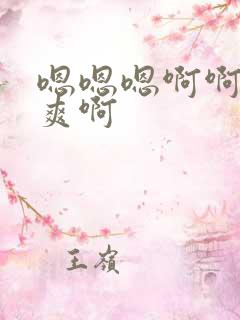 嗯嗯嗯啊啊
爽啊
王嶺